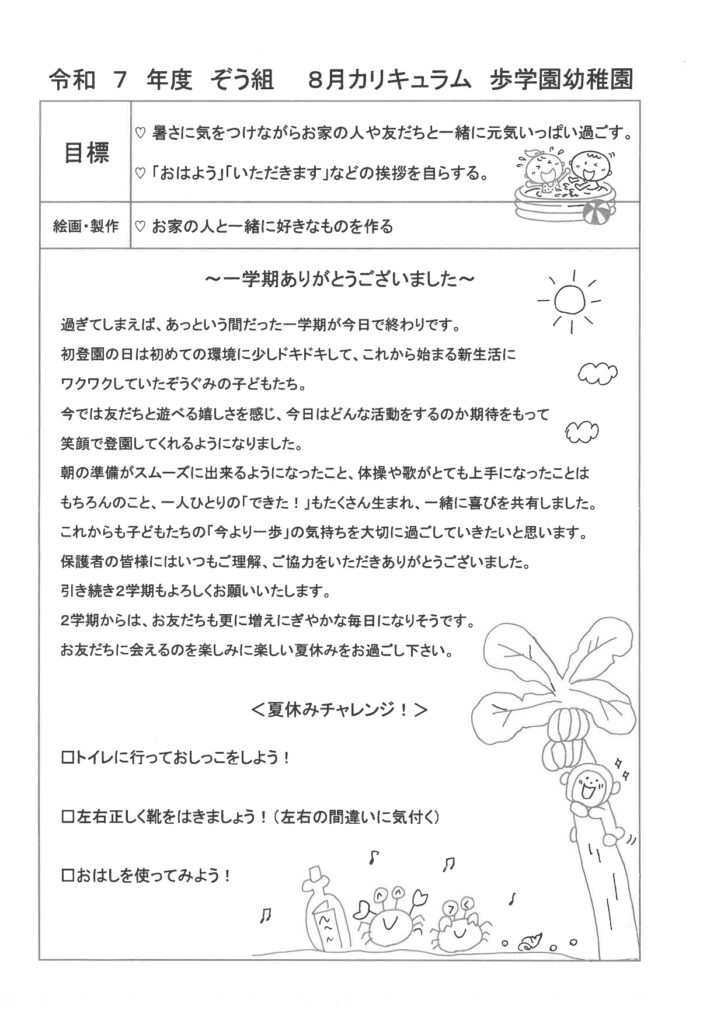 令和 7 年度 ぞう組 8月カリキュラム 歩学園幼稚園
目標
♡ 暑さに気をつけながらお家の人や友だちと一緒に元気いっぱい過ごす。
♡ 「おはよう」「いただきます」などの挨拶を自らする。
絵画・製作
♡ お家の人と一緒に好きなものを作る
～一学期ありがとうございました～
過ぎてしまえば、あっという間だった一学期が今日で終わりです。
初登園の日は初めての環境に少しドキドキして、これから始まる新生活に
ワクワクしていたぞうぐみの子どもたち。
今では友だちと遊べる嬉しさを感じ、今日はどんな活動をするのか期待をもって
笑顔で登園してくれるようになりました。
朝の準備がスムーズに出来るようになったこと、体操や歌がとても上手になったことは
もちろんのこと、一人ひとりの「できた！」もたくさん生まれ、一緒に喜びを共有しました。
これからも子どもたちの「今より一歩」の気持ちを大切に過ごしていきたいと思います。
保護者の皆様にはいつもご理解、ご協力をいただきありがとうございました。
引き続き2学期もよろしくお願いいたします。
2学期からは、お友だちも更に増えにぎやかな毎日になりそうです。
お友だちに会えるのを楽しみに楽しい夏休みをお過ごし下さい。
＜夏休みチャレンジ！＞
□トイレに行っておしっこをしよう！
□左右正しく靴をはきましょう！（左右の間違いに気付く）
□おはしを使ってみよう！